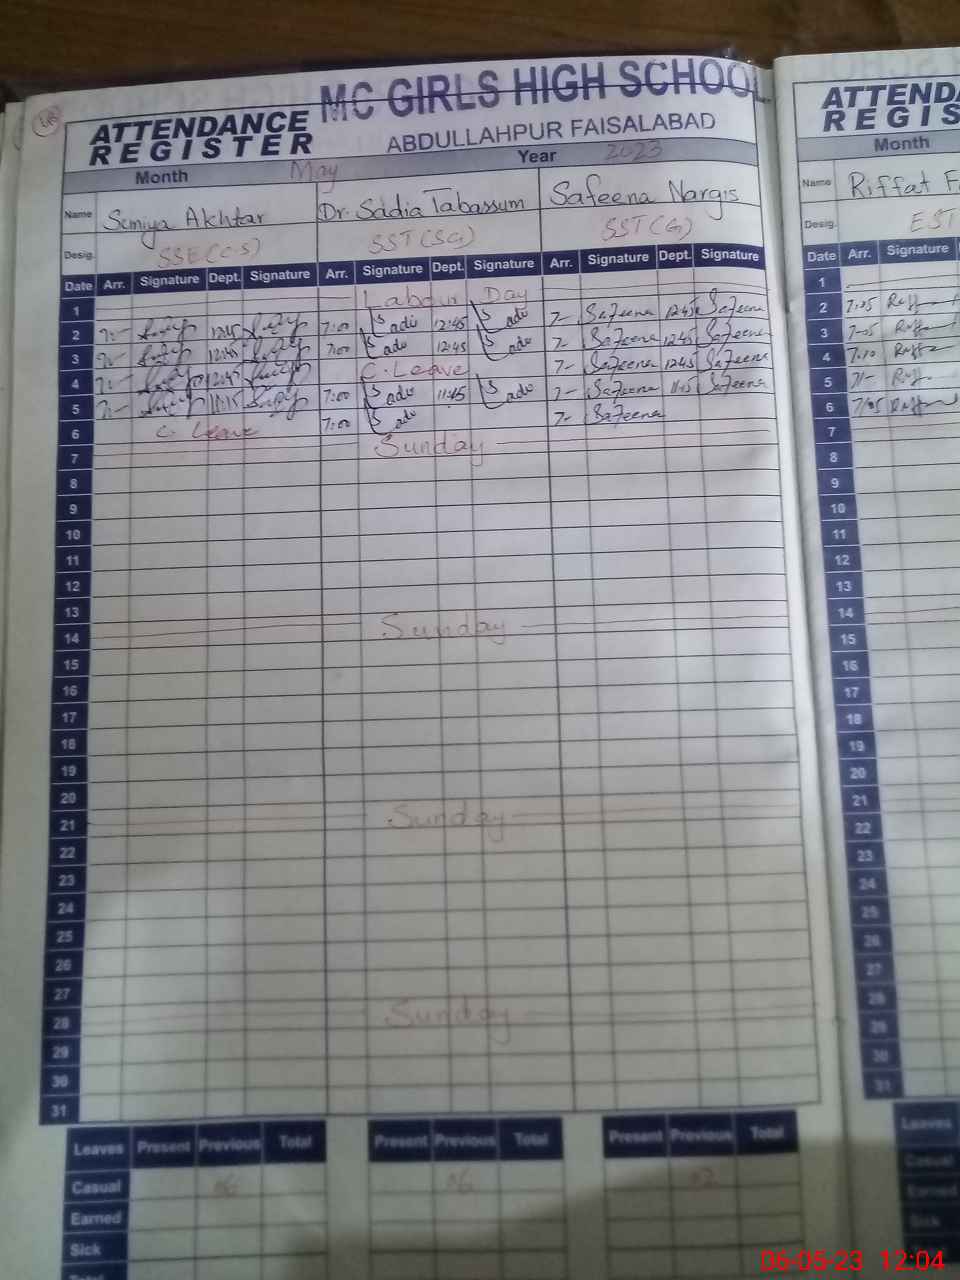 MC GIRLS HIGH SCHOOL
ATTENDANCE REGISTER
ABDULLAHPUR FAISALABAD
Month May Year 2023
Name Sumiya Akhtar Dr. Sadia Tabassum Safeena Nargis
Desig. SSE(C.S) SST(SG) SST(G)
Date Arr. Signature Dept. Signature Arr. Signature Dept. Signature Arr. Signature Dept. Signature
1 Labour Day
2 7:- 12:45 7:00 Sadi 12:45 Sadi 7- Safeena 12:45 Safeena
3 7:- 12:45 7:00 Sadi 12:45 Sadi 7- Safeena 12:45 Safeena
4 7:- 12:45 C. Leave 7- Safeena 12:45 Safeena
5 7:- 11:15 7:00 Sadi 11:45 Sadi 7- Safeena Safeena
6 C. Leave 7:00 Sadi 7- Safeena
7 Sunday
8
9
10
11
12
13
14 Sunday
15
16
17
18
19
20
21 Sunday
22
23
24
25
26
27
28 Sunday
29
30
31
Leaves Present Previous Total Present Previous Total Present Previous Total
Casual 06 06 02
Earned
Sick
Total
ATTENDA
REGIS
Month
Name Riffat F
Desig. EST
Date Arr. Signature
1
2 7:05
3 7:05
4 7:10
5 7:-
6 7:05
7
8
9
10
11
12
13
14
15
16
17
18
19
20
21
22
23
24
25
26
27
28
29
30
31
Leaves
Casual
Earned
Sick
06-05-23 12:04